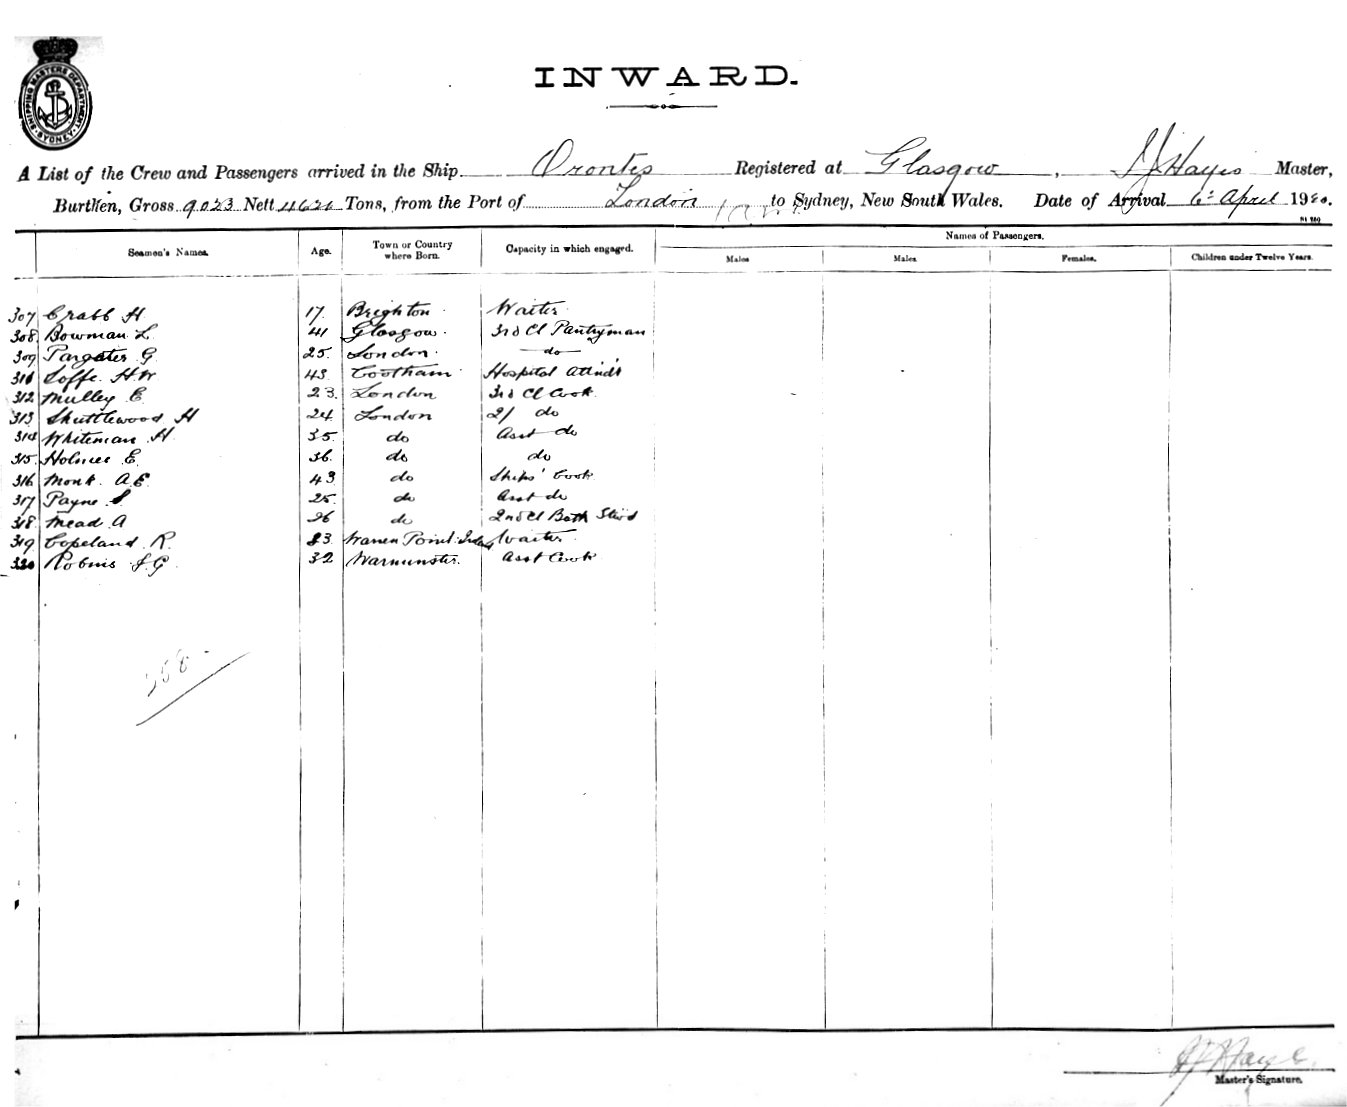 SHIPPING MASTERS DEPARTMENT SYDNEY
INWARD.
A List of the Crew and Passengers arrived in the Ship Orontes Registered at Glasgow, Hayes Master,
Burthen, Gross 9023 Nett 4620 Tons, from the Port of London to Sydney, New South Wales. Date of Arrival 6 April 1920.
Seamen's Names. Age. Town or Country where Born. Capacity in which engaged. Names of Passengers.
Males Males Females. Children under Twelve Years.
307 Crabb H 17 Brighton Waiter
308 Bowman L 41 Glasgow 3rd Cl Pantryman
309 Pargeter G 25 London do
Soffe H.W 43 Cootham Hospital Attndt
312 Mulley E 23 London 3rd Cl Cook
313 Shuttlewood H 24 London 2/ do
314 Whiteman H 35 do Asst do
315 Holmes E 36 do do
316 Monk A.E 43 do Ships' Cook
317 Payne S 25 do Asst do
318 Mead A 26 do 2nd Cl Bath Stwd
319 Copeland R. 23 Warren Point Waiter
320 Robins G 32 Warminster. Asst Cook
Master's Signature.